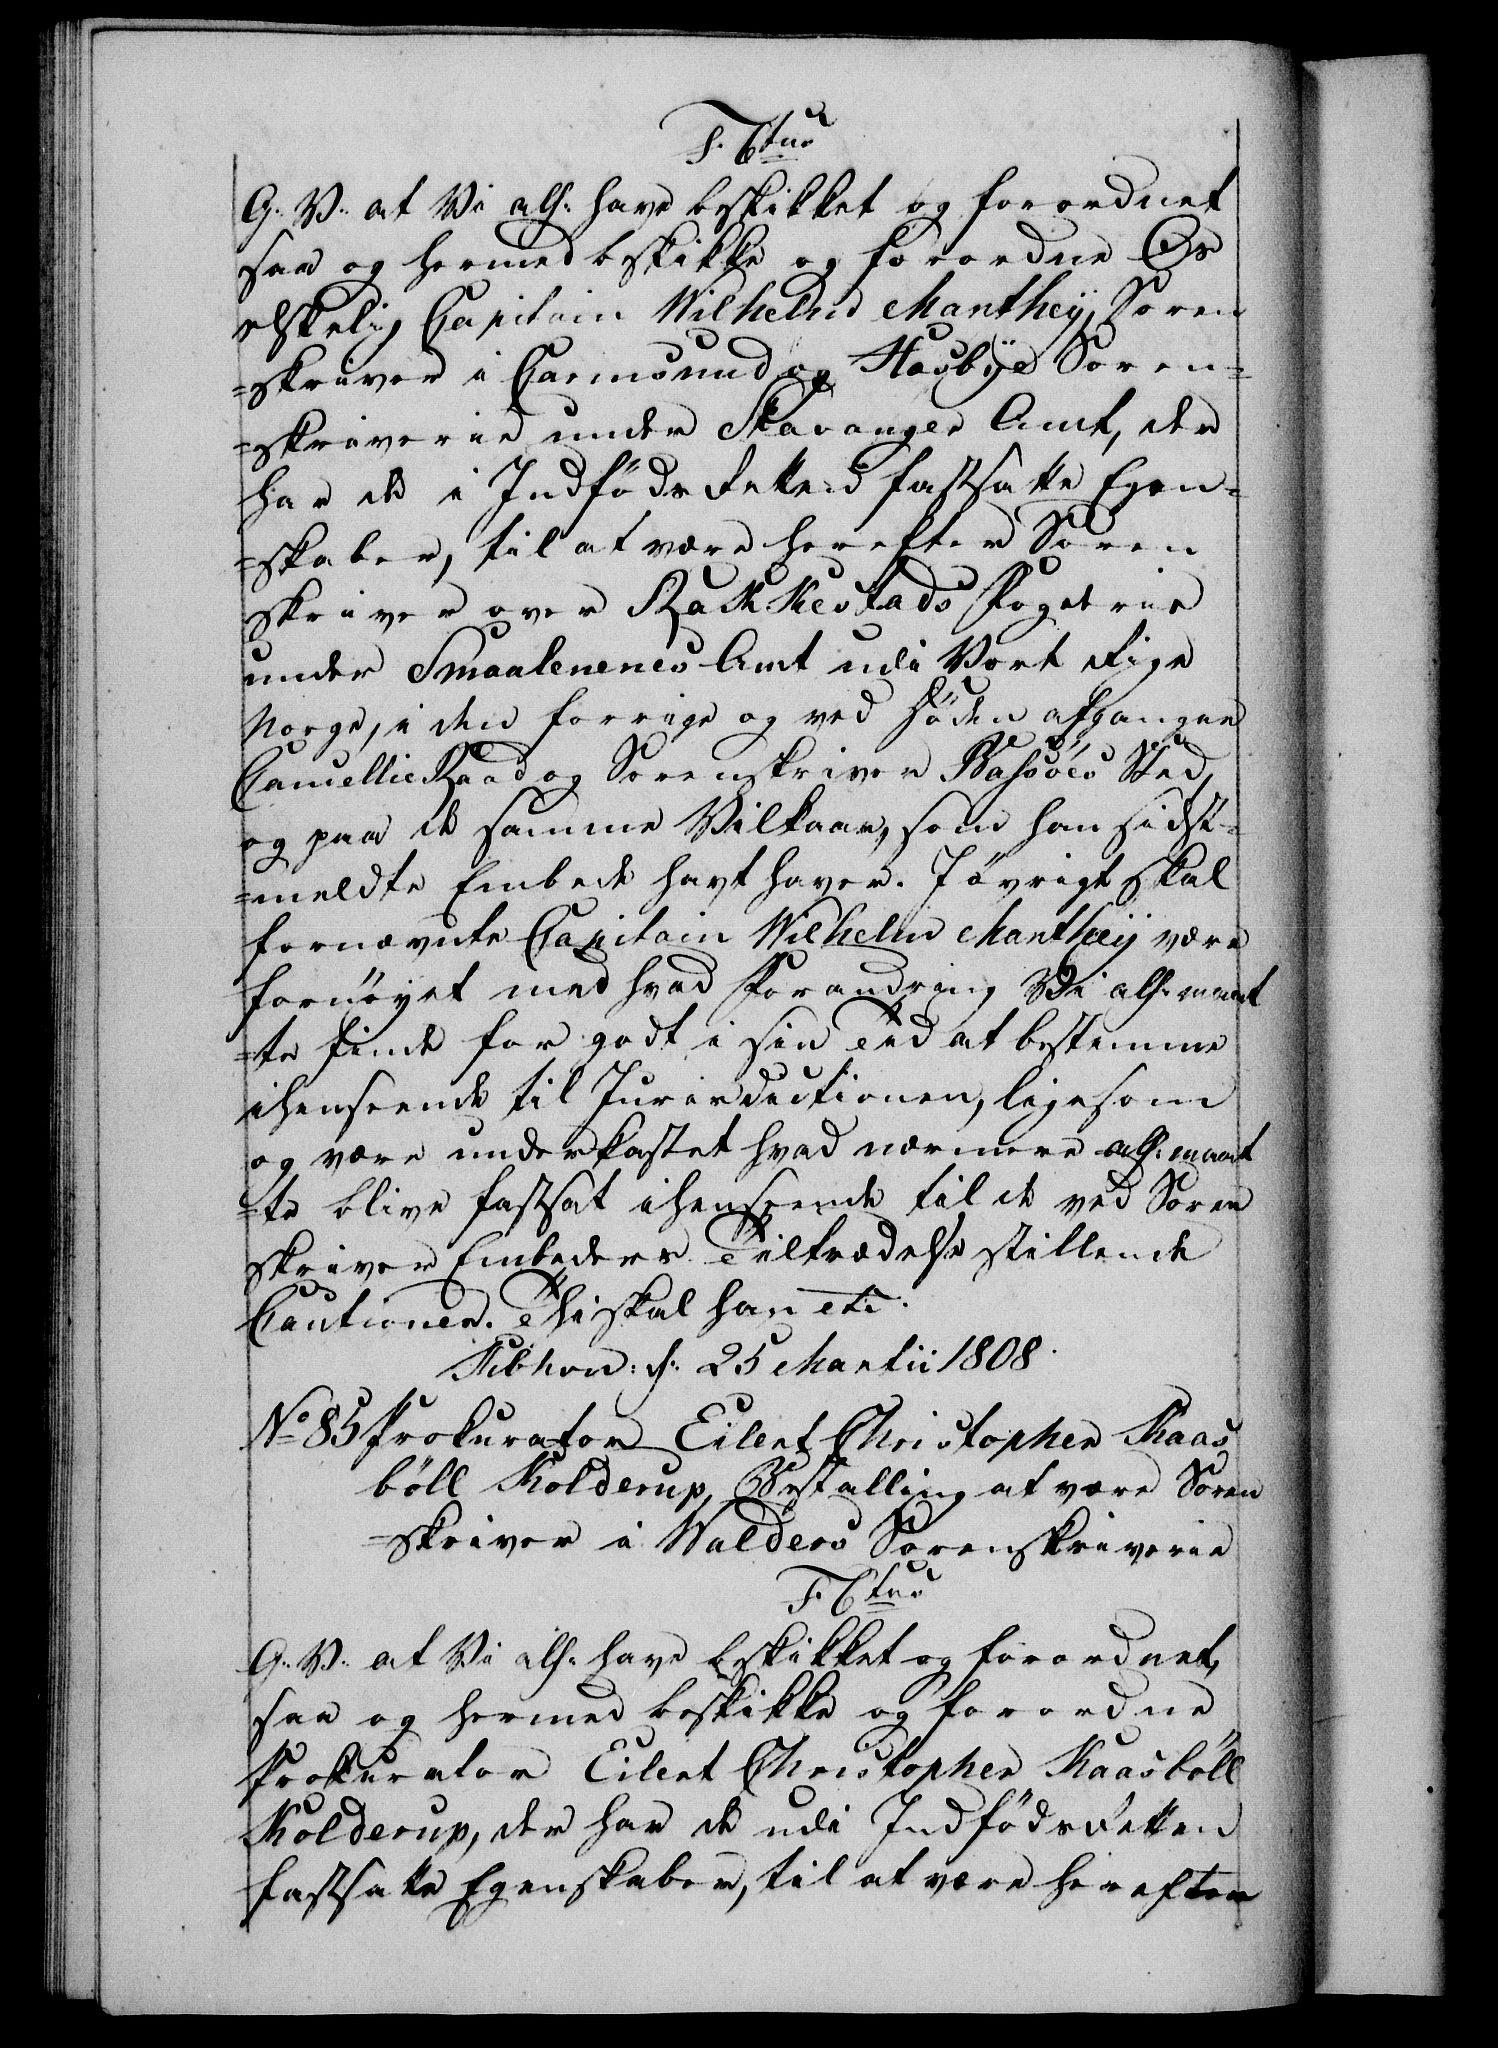 F. 6tus
G. V. at Vi alh: have beskikket og forordnet
saa og hermed beskikke og forordne Os
elskelig Capitain Wilhelm Mantheÿ, Soren
=skriver i Carmsund og Hæsbÿe Soren=
=skriverie under Stavanger Amt, der
har de i Indfødsretten fastsatte Egen=
=skaber, til at være herefter Soren
skriver over Rakkestads Fogderie
under Smaalenenes Amt udi Vort Rige
Norge, i den forrige og ved Døden afgangne
Cancellie Raad og Sorenskriver Bassöes Sted,
og paa de samme Vilkaar, som han sidst=
=meldte Embede havt haver. I øvrigt skal
fornævnte Capitain Wilhelm Mantheÿ være
fornøyet med hvad Forandring Vi alh: maat
=te finde for godt i sin Tid at bestemme
ihenseende til Jurisdictionen, ligesom
og være underkastet hvad nærmere alh: maat
=te blive fastsat ihenseende til de ved Soren
skriver Embeders Tiltrædelse stillende
Cautioner. Thi skal han etc.
Kibhvn: d: 25 Martii 1808.
No 85 Prokurator Eilert Christopher Kaas
böll Kolderup, Bestalling at være Soren
=skriver i Walders Sorenskriverie
F. Ctus
G. V. at Vi alh: have beskikket og forordnet,
saa og hermed beskikke og forordne
Prokurator Eilert Christopher Kaasböll
Kolderup, der har de udi Indfødsretten
fastsatte Egenskaber, til at være herefter